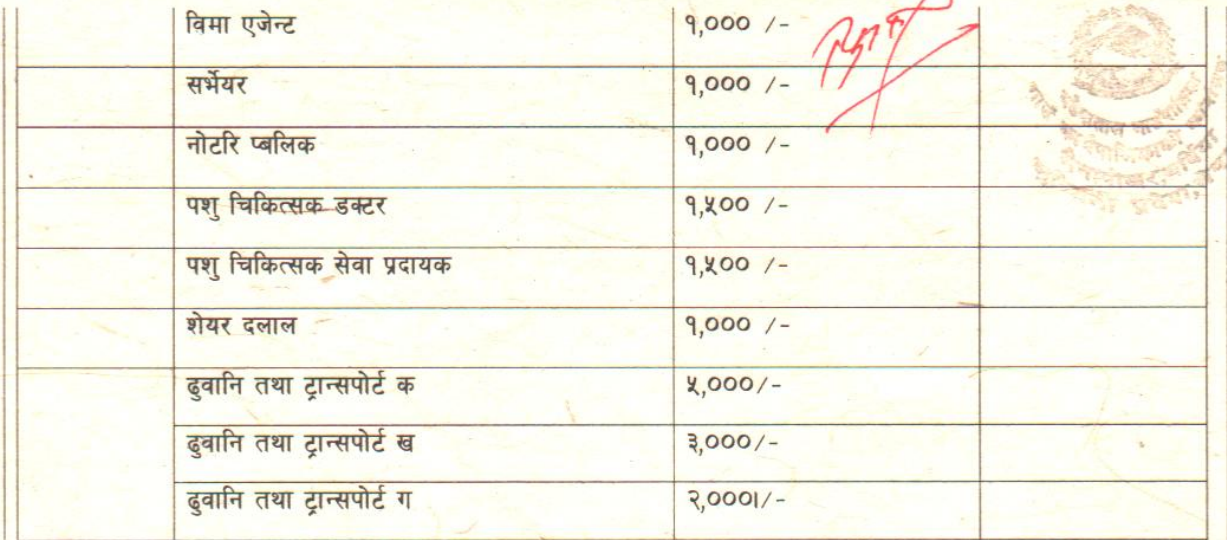 विमा एजेन्ट १,००० /-
सर्भेयर १,००० /-
नोटरि प्बलिक १,००० /-
पशु चिकित्सक डक्टर १,५०० /-
पशु चिकित्सक सेवा प्रदायक १,५०० /-
शेयर दलाल १,००० /-
ढुवानि तथा ट्रान्सपोर्ट क ५,०००/-
ढुवानि तथा ट्रान्सपोर्ट ख ३,०००/-
ढुवानि तथा ट्रान्सपोर्ट ग २,०००।/-